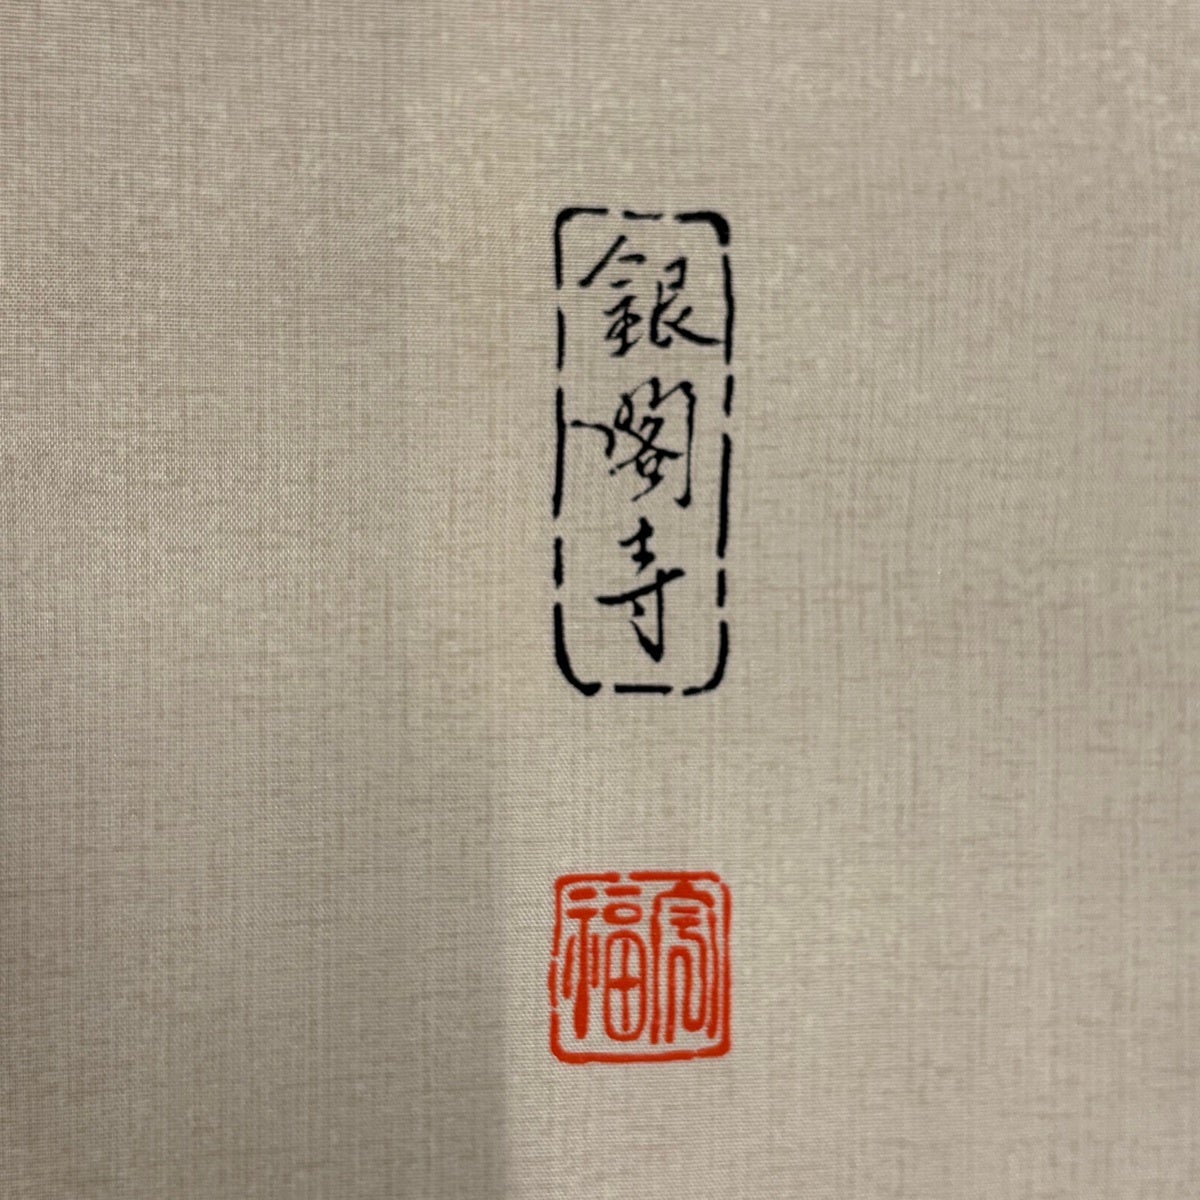 銀閣寺
福